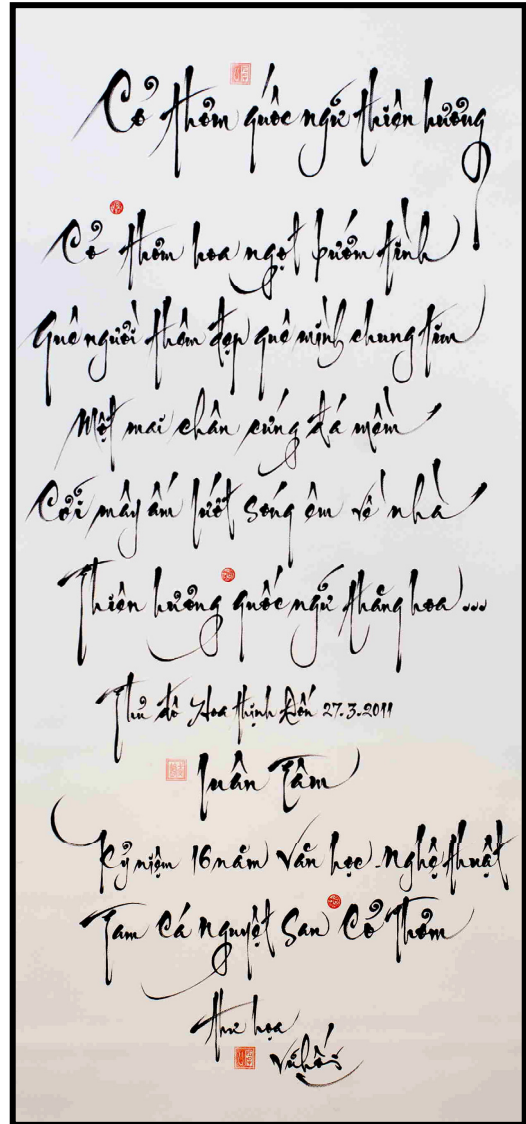 Cỏ thơm quốc ngữ thiên hương
Cỏ thơm hoa ngọt bướm tình
Quê người thêm đẹp quê mình chung tim
Một mai chân cứng đá mềm
Cưỡi mây ấm lướt sóng êm về nhà
Thiên hương quốc ngữ thăng hoa...
Thủ đô Hoa thịnh Đốn 27.3.2011
Xuân Tâm
Kỷ niệm 16 năm Văn học - Nghệ thuật
Tam Cá Nguyệt San Cỏ Thơm
Thư họa
Vũ hối